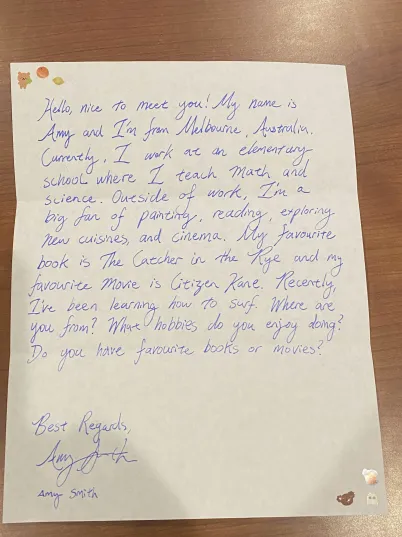 Hello, nice to meet you! My name is
Amy and I'm from Melbourne, Australia.
Currently, I work at an elementary
school where I teach math and
science. Outside of work, I'm a
big fan of painting, reading, exploring
new cuisines, and cinema. My favourite
book is The Catcher in the Rye and my
favourite movie is Citizen Kane. Recently,
I've been learning how to surf. Where are
you from? What hobbies do you enjoy doing?
Do you have favourite books or movies?
Best Regards,
Amy Smith
Amy Smith